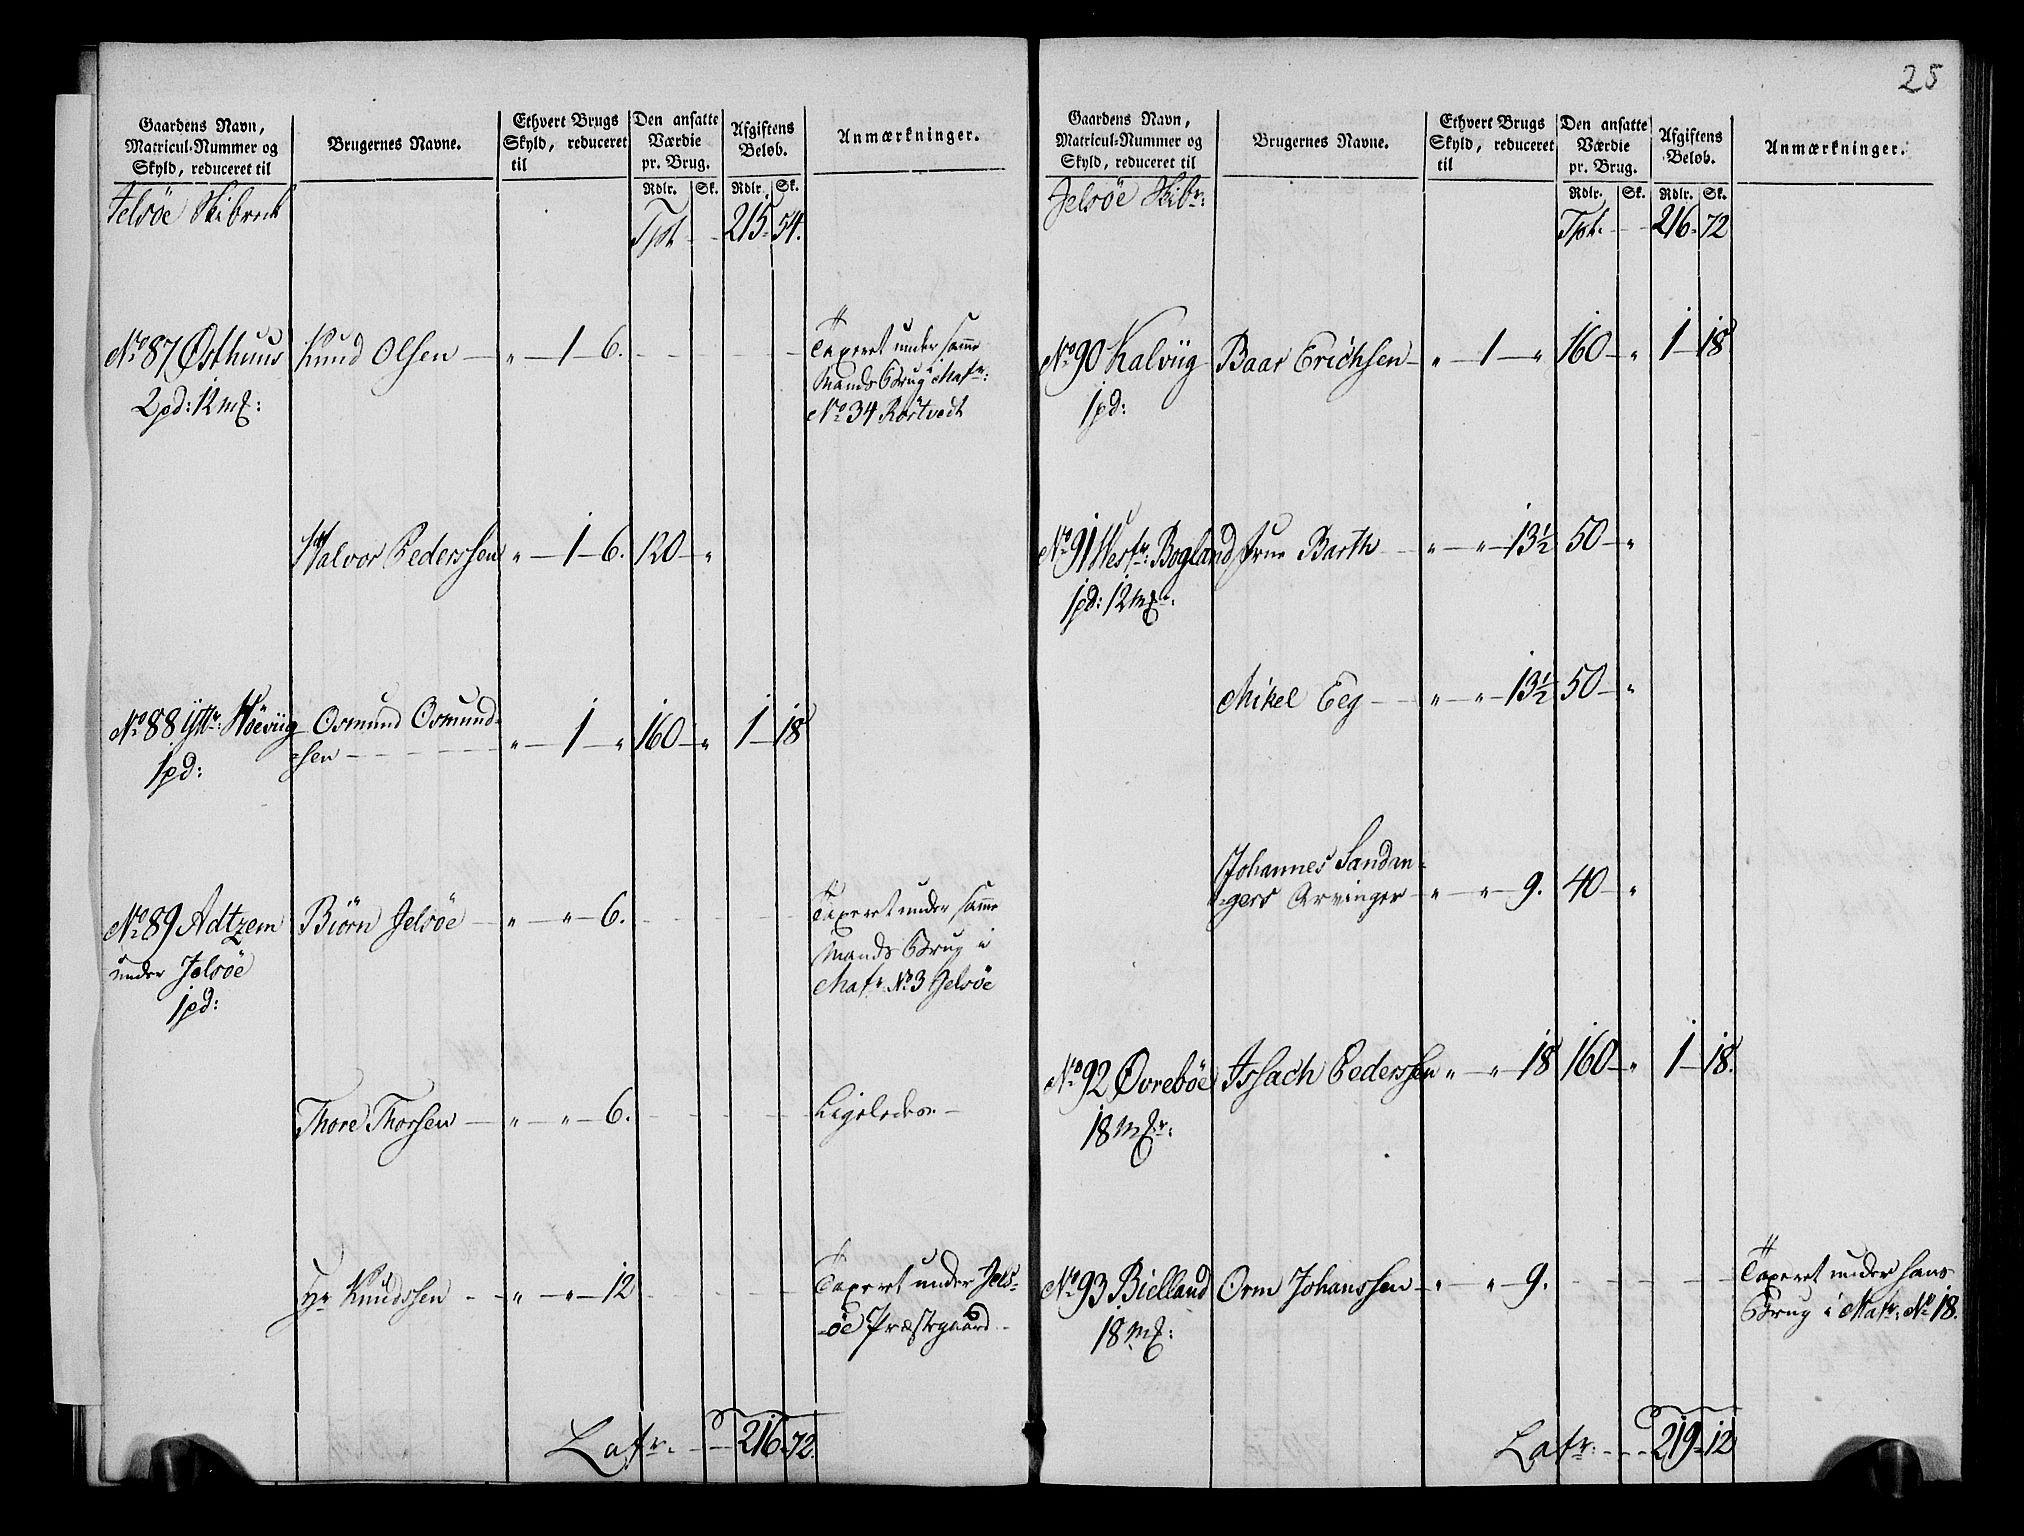 25
Gaardens Navn, Matricul-Nummer og Skyld, reduceret til
Brugernes Navne.
Ethvert Brugs Skyld, reduceret til
Den ansatte Værdie pr. Brug.
Afgiftens Beløb.
Anmærkninger.
Rdlr. Sk. Rdlr. Sk.
Jelsöe Skibred
Tpt - - 215. 54.
No 87 Østhuus Knud Olsen - " - 1 - 6. - - - - Taxeret under samme
2 pd: 12 m℔: Mands Brug i Matr:
No 34 Röstvedt
Halvor Pederssen " - 1 - 6. 120 - "
No 88 Ytr: Høeviig Osmund Osmund-
1 pd: -sen - - - " - 1 - " 160 - " 1 - 18
No 89 Adtzem Biörn Jelsöe - " - " - 6. - - - - Taxeret under samme
under Jelsöe Mands Brug i
1 pd: Matr No 3 Jelsöe
Thore Thorssen - " - " - 6. - - - - Ligeledes -
Hr Knudssen - " - " - 12 - - - - Taxeret under Jels-
-öe Præstegaard -
Latr. - - 216 - 72.
Gaardens Navn, Matricul-Nummer og Skyld, reduceret til
Brugernes Navne.
Ethvert Brugs Skyld, reduceret til
Den ansatte Værdie pr. Brug.
Afgiftens Beløb.
Anmærkninger.
Rdlr. Sk. Rdlr. Sk.
Jelsöe Skibr:
Tpt. - - 216. 72
No 90 Kalviig Baar Erichsen - " - 1 - " 160 - " 1 - 18
1 pd:
No 91 Westr: Bogland Frue Barth - " - " - 13½ 50 - "
1 pd: 12 m℔r:
Mikel Eeg - " - " - 13½ 50 - "
Johannes Sandan-
-gers Arvinger - " - " - 9. 40 - "
No 92 Øvreböe Issach Pederssen " - " - 18 160 - " 1 - 18.
18 m℔r:
No 93 Bielland Orm Johanssen - " - " - 9. - - - - Taxeret under hans
18 m℔: Brug i Matr: No 18.
Latr: - - 219 - 12